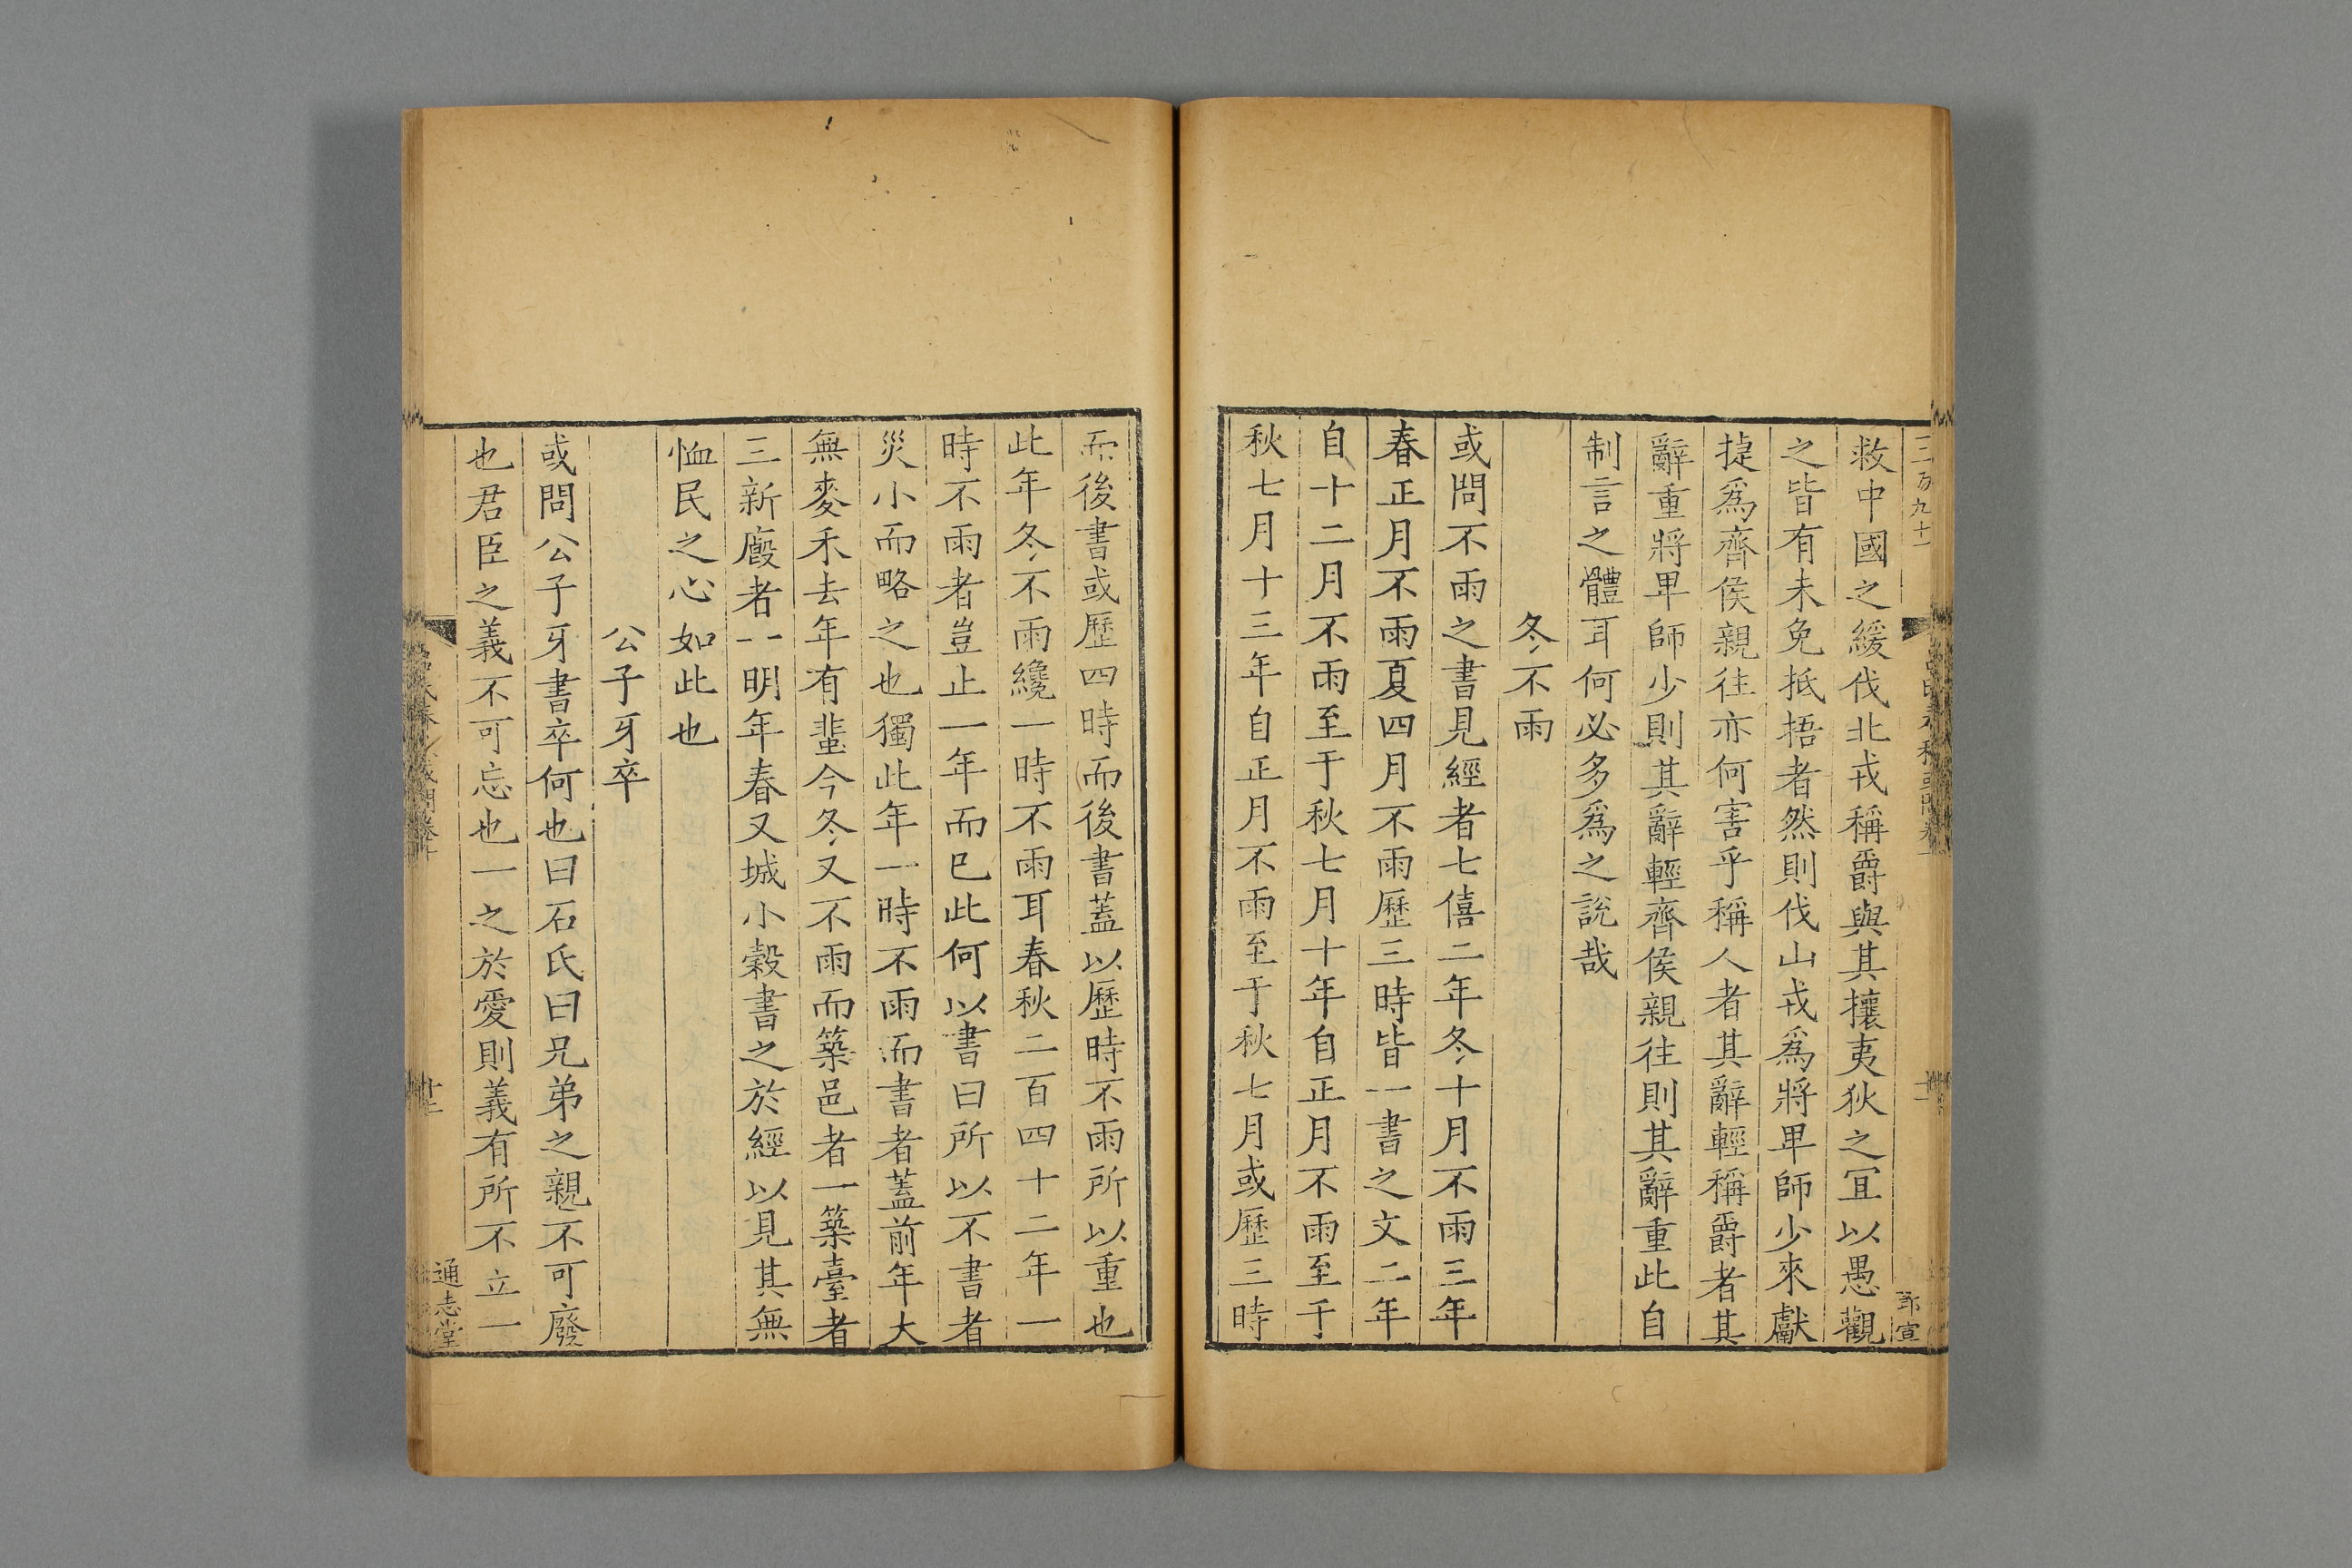 三百九十
救中國之緩伐北戎稱爵與其攘夷狄之冝以愚觀
之皆有未免抵捂者然則伐山戎爲將卑師少來獻
捷爲齊侯親往亦何害乎稱人者其辭輕稱爵者其
辭重將卑師少則其辭輕齊侯親往則其辭重此自
制言之體耳何必多爲之說哉
冬不雨
或問不雨之書見經者七僖二年冬十月不雨三年
春正月不雨夏四月不雨歷三時皆一書之文二年
自十二月不雨至于秋七月十年自正月不雨至于
秋七月十三年自正月不雨至于秋七月或歷三時
而後書或歷四時而後書蓋以歷時不雨所以重也
此年冬不雨纔一時不雨耳春秋二百四十二年一
時不雨者豈止一年而巳此何以書曰所以不書者
災小而略之也獨此年一時不雨而書者蓋前年大
無麥禾去年有蜚今冬又不雨而築邑者一築臺者
三新廄者一明年春又城小糓書之於經以見其無
恤民之心如此也
公子牙卒
或問公子牙書卒何也曰石氏曰兄弟之親不可廢
也君臣之義不可忘也一之於愛則義有所不立一
通志堂